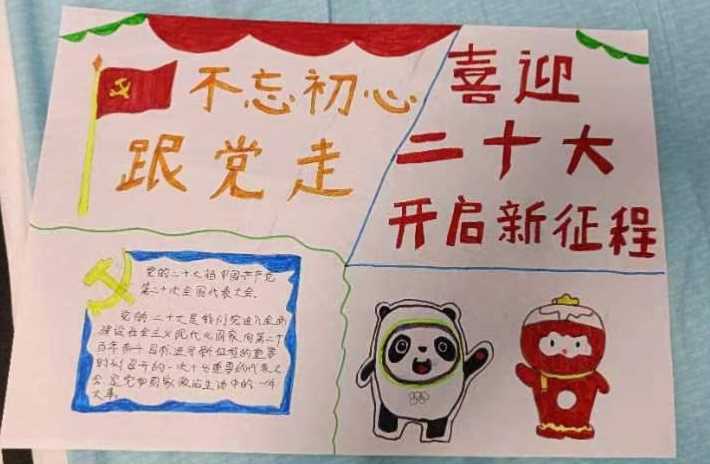 不忘初心
跟党走
喜迎
二十大
开启新征程
党的二十大指中国共产党
第二十次全国代表大会。
党的二十大是我们党进入全面
建设社会主义现代化国家、向第二个
百年奋斗目标进军新征程的重要
时刻召开的一次十分重要的代表大
会,是党和国家政治生活中的一件
大事。